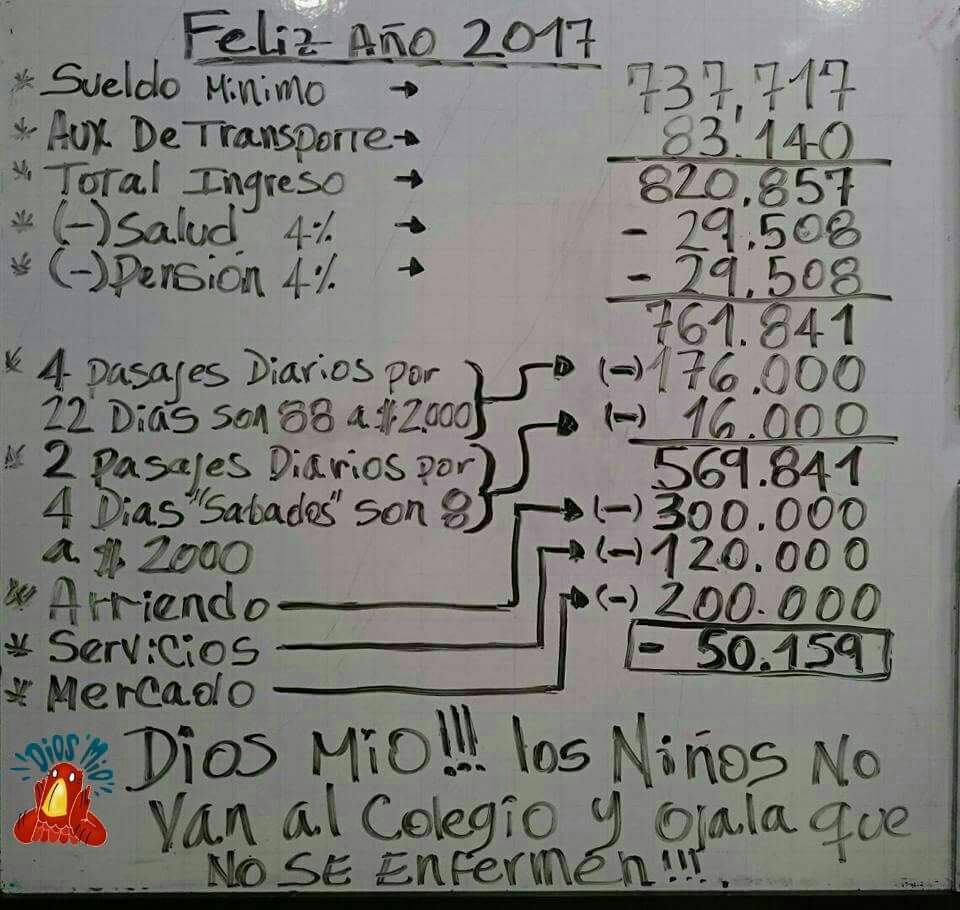 Feliz Año 2017
* Sueldo Minimo → 737,717
* Aux De Transporte → 83.140
* Total Ingreso → 820.857
* (-) Salud 4% → - 29.508
* (-) Pensión 4% → - 29.508
761.841
* 4 pasajes Diarios por (-) 176.000
22 Dias son 88 a $2.000 (-) 16.000
* 2 Pasajes Diarios por 569.841
4 Dias "Sabados" son 8 (-) 300.000
a $ 2000 (-) 120.000
* Arriendo (-) 200.000
* Servicios - 50.159
* Mercado
Dios Mio
Dios Mio!!! los Niños No
Van al Colegio y Ojala que
No SE Enfermen!!!